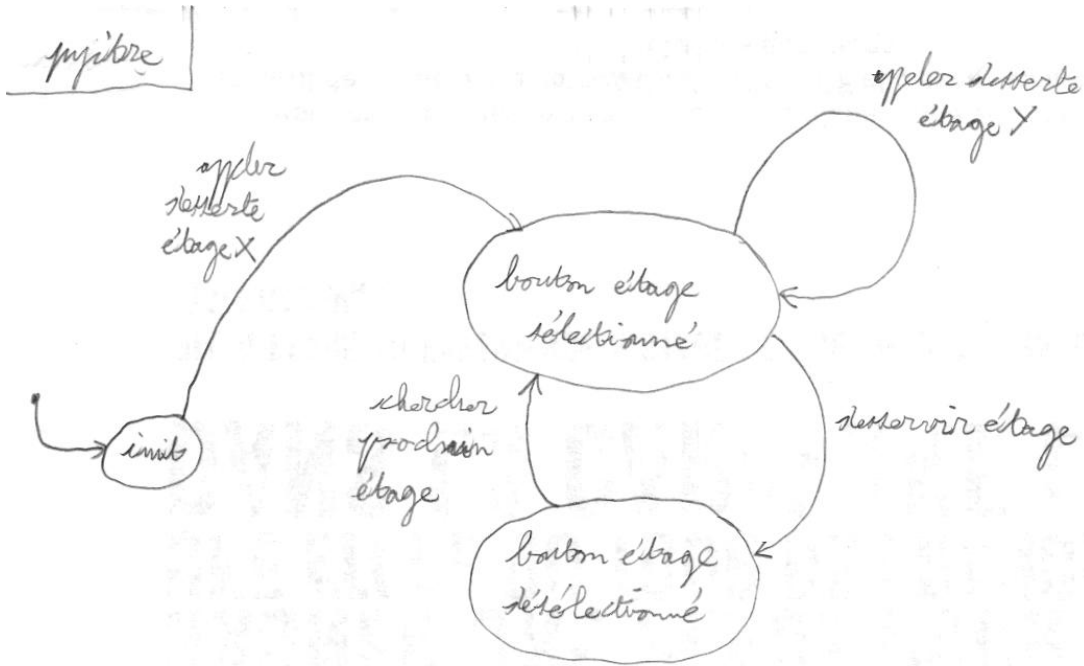 pupitre
appeler desserte
étage Y
appeler
desserte
étage X
bouton étage
sélectionné
chercher
prochain
étage
desservir étage
init
bouton étage
désélectionné